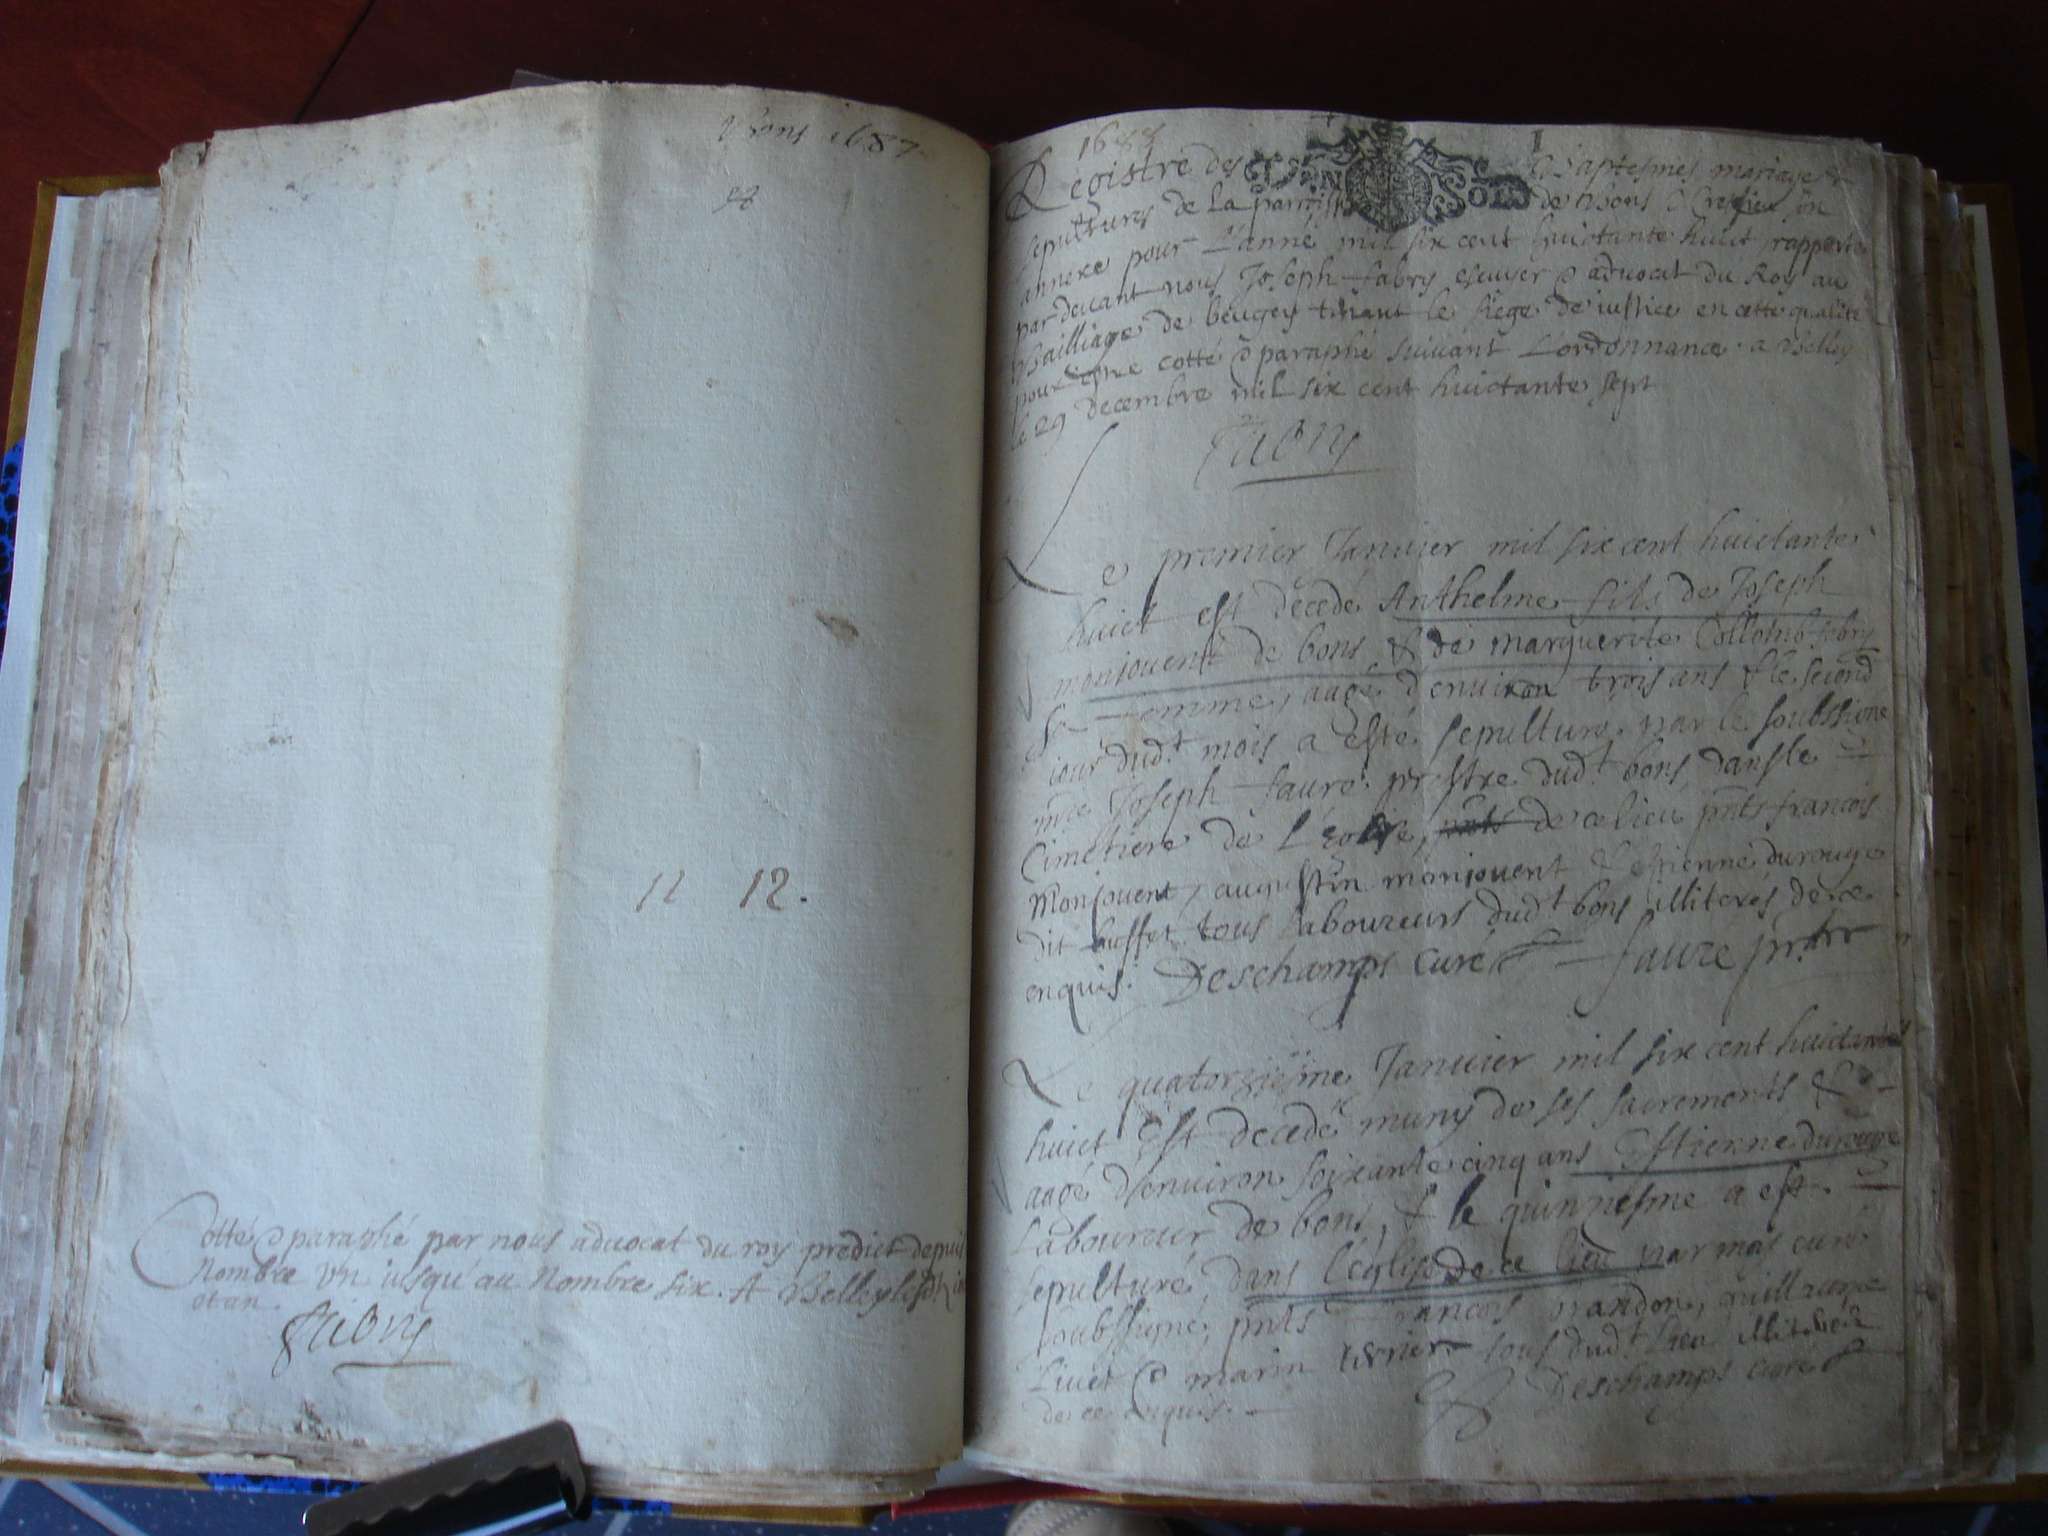 Vbons 1687
12 12.
Cotté & paraphé par nous advocat du roy predict depuis
Nombre Un iusqu'au Nombre six. A Belley
et an.
Fabry
1688
I
Registre des Baptesmes mariages &
sepultures de la parroisse de Vbons & Cressieu son
annexe pour L'anné mil six cent huictante huict rapporté
par devant nous Joseph fabry escuyer & advocat du Roy au
Bailliage de beugey tenant le siege de iustice en cette qualité
pour estre cotté & paraphé suivant L'ordonnance a Belley
le 29 decembre mil six cent huictante sept
Fabry
Le premier Janvier mil six cent huictante
huict est décédé Anthelme fils de Joseph
monjouent de bons & de marguerite Collomb fabry
sa femme, aagé d'environ trois ans & le second
iour dud.t mois a esté sepulturé par le soubsigné
mre Joseph faure prestre dud.t bons dans le
Cimetiere de L'eglise, de ce lieu pnts francois
Monjouent, augustin monjouent & estienne durouge
dit buffet tous laboureurs dud.t bons illiterés de ce
enquis. Deschamps curé faure prbre
Le quatorziesme Janvier mil six cent huictante
huict est décédé muny de ses sacrements &
aagé d'environ soixante cinq ans Estienne durouge
Laboureur de bons, & le quinziesme a esté
sepulturé, dans l'église de ce lieu par moy curé
soubssigné, pnts francois nandon, guillaume
Livet & marin tous dud.t lieu illiterés
de ce enquis. Deschamps curé